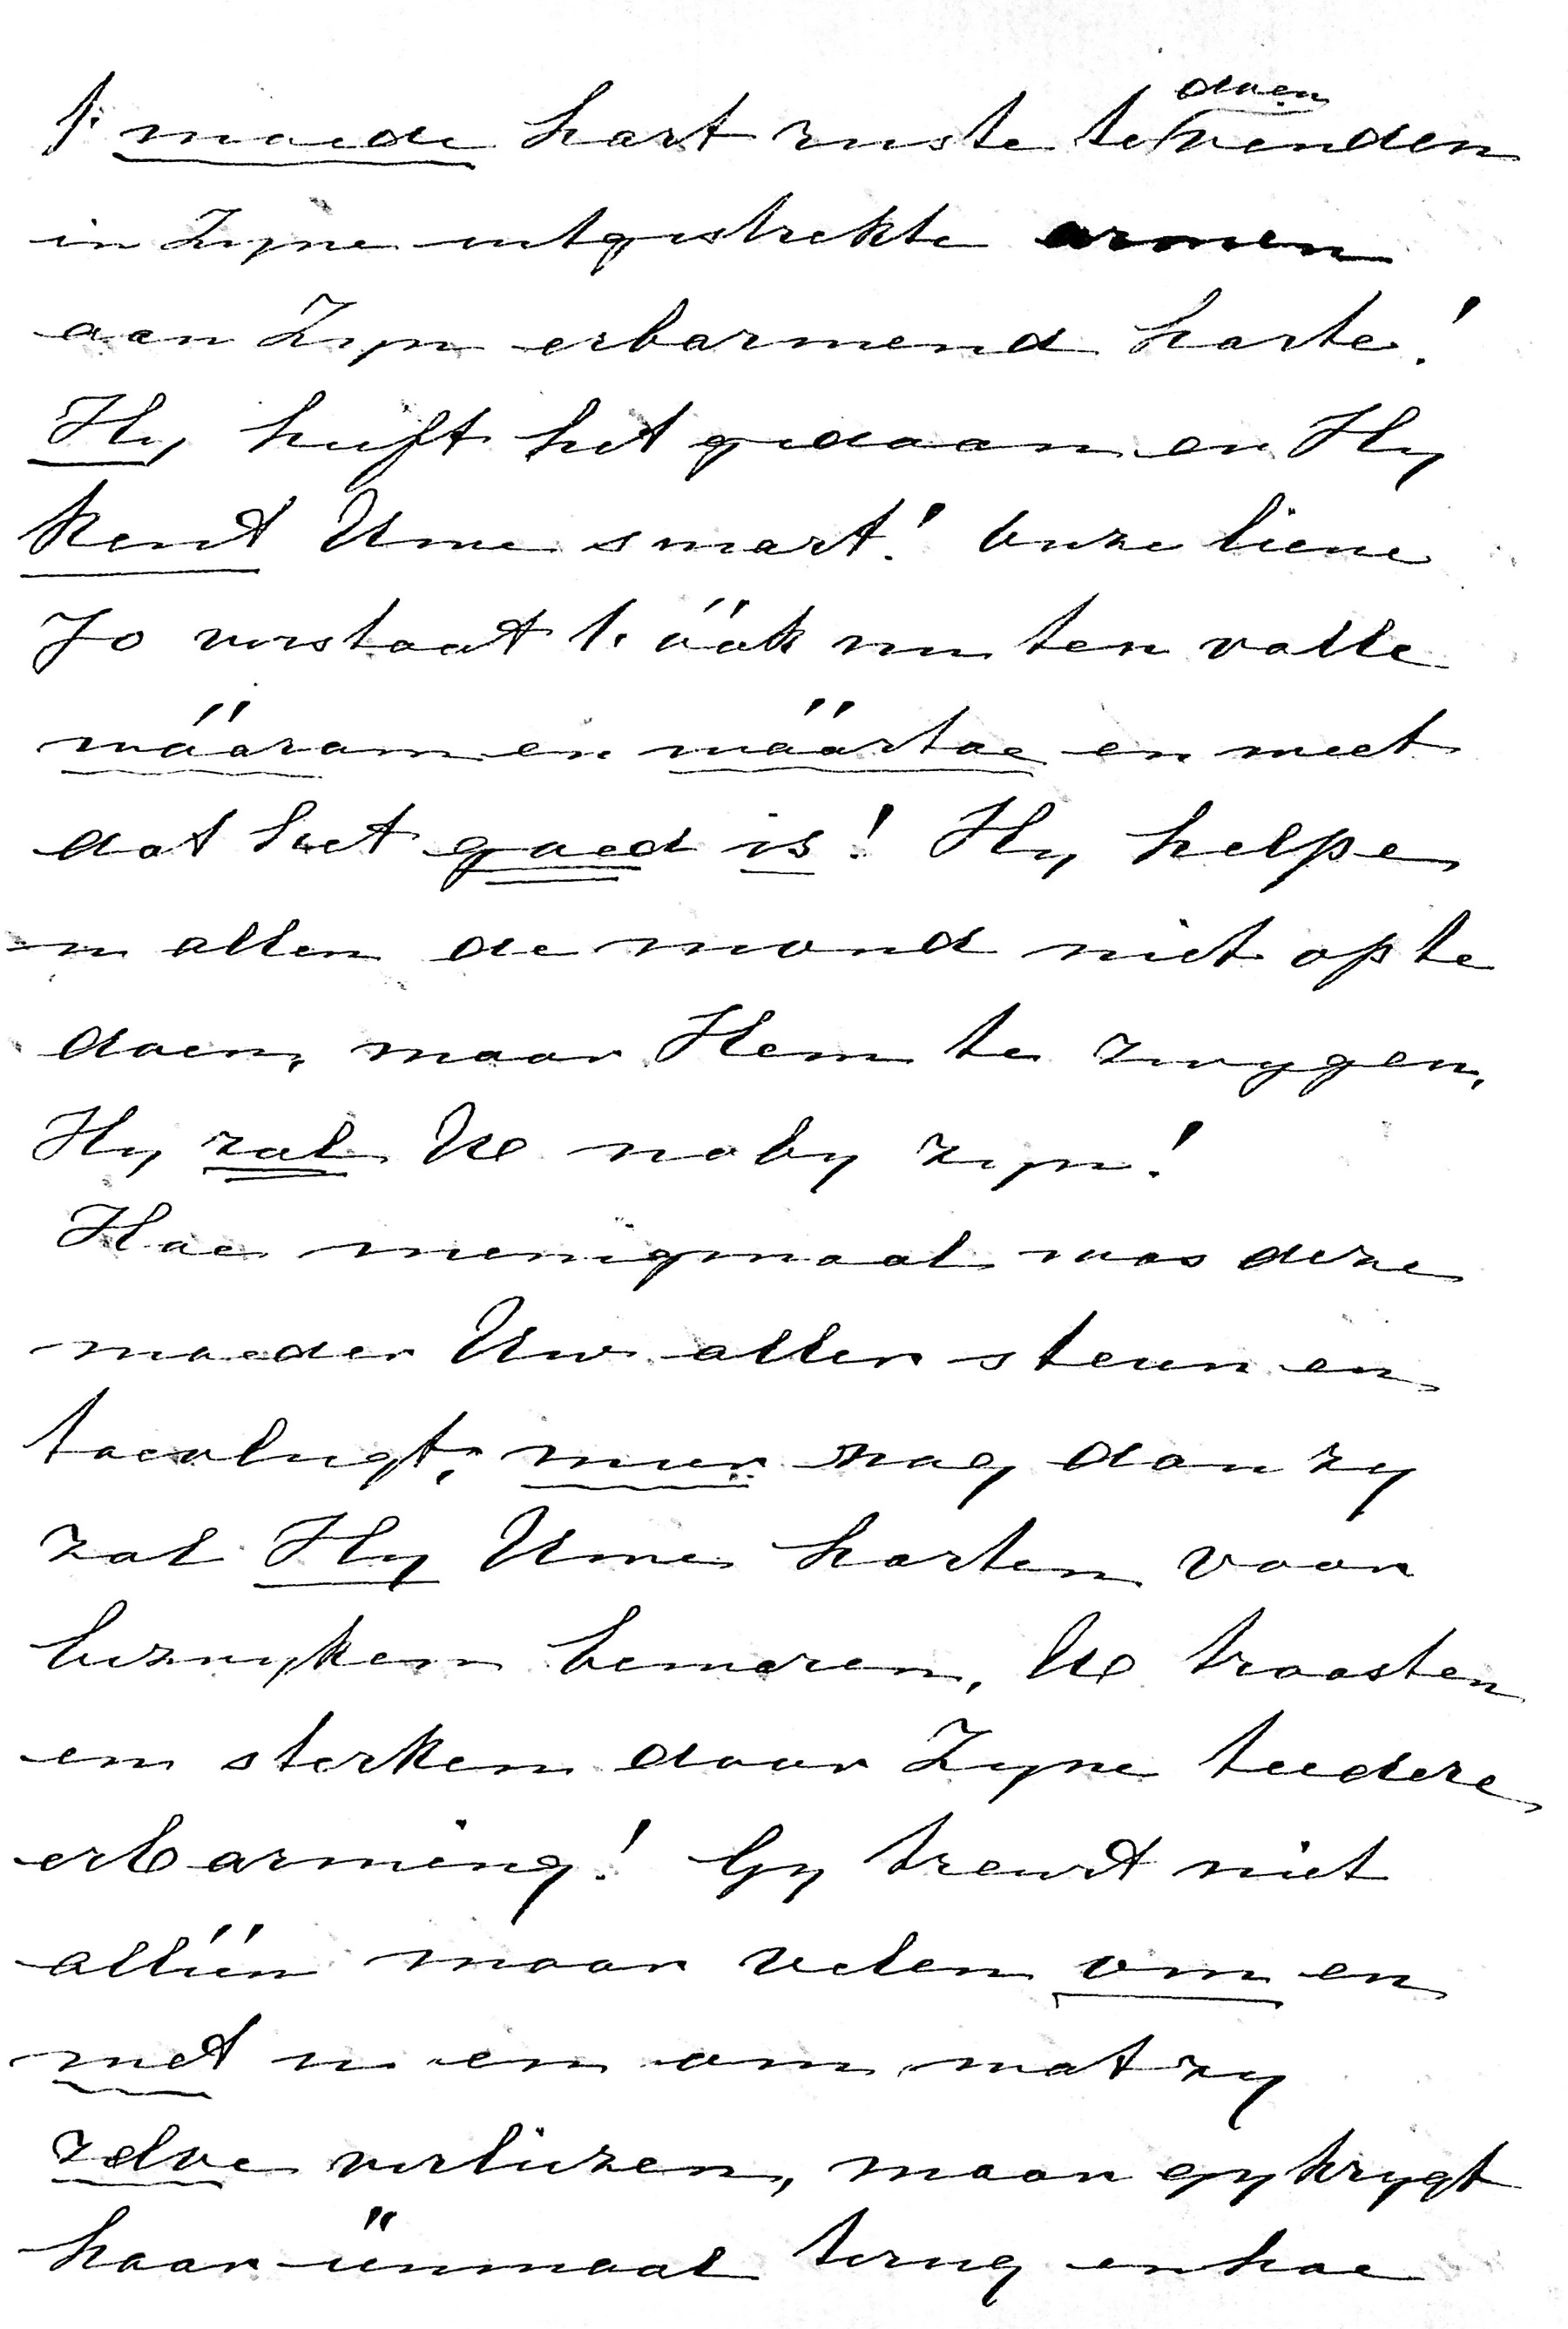 't moede hart ruste te doen vinden
in Zyne uitgestrekte armen
aan Zyn erbarmend harte!
Hy heeft het gedaan en Hy
kent Uwe smart! Onze lieve
Jo verstaat 't óók nu ten volle
wáárom en wáártoe en weet
dat het goed is! Hy helpe
u allen de mond niet op te
doen, maar Hem te zwygen,
Hy zal Ue naby zyn!
Hoe menigmaal was deze
moeder Uw aller steun en
toevlugt; meer nog dan zy
zal Hy Uwe harten voor
bezwyken bewaren, Ue troosten
en sterken door Zyne teedere
erbarming! Gy treurt niet
alléén maar velen om en
met u en om wat zy
zelve verliezen, maar gy krygt
haar éénmaal terug en hoe